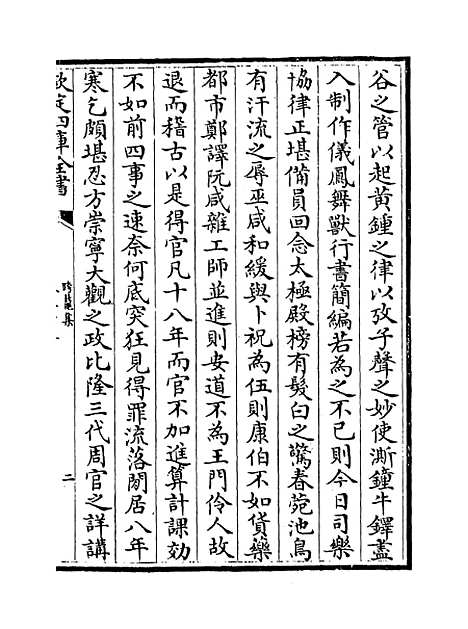 谷之管以起黄鍾之律以攷子聲之妙使澌鐘牛鐸盡
入制作儀鳳舞獸行書簡編若為之不已則今日司樂
協律正堪備員回念太極殿榜有髮白之驚春菀池鳥
有汗流之辱巫咸和緩與卜祝為伍則康伯不如貨藥
都市鄭譯阮咸雜工師並進則安道不為王門伶人故
退而稽古以是得官凡十八年而官不加進算計課効
不如前四事之速奈何底突狂見得罪流落閒居八年
寒乞頗堪忍方崇寧大觀之政比隆三代周官之詳講
欽定四庫全書
跨鼇集
二